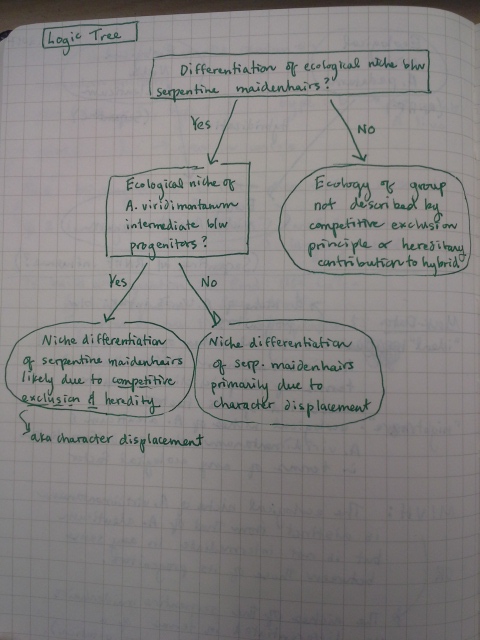 Logic Tree
Differentiation of ecological niche b/w
serpentine maidenhairs?
Yes
No
Ecological niche of
A. viridimontanum
intermediate b/w
progenitors?
Ecology of group
not described by
competitive exclusion
principle or hereditary
contribution to hybrid
Yes
No
Niche differentiation
of serpentine maidenhairs
likely due to competitive
exclusion & heredity
Niche differentiation
of serp. maidenhairs
primarily due to
character displacement
aka character displacement